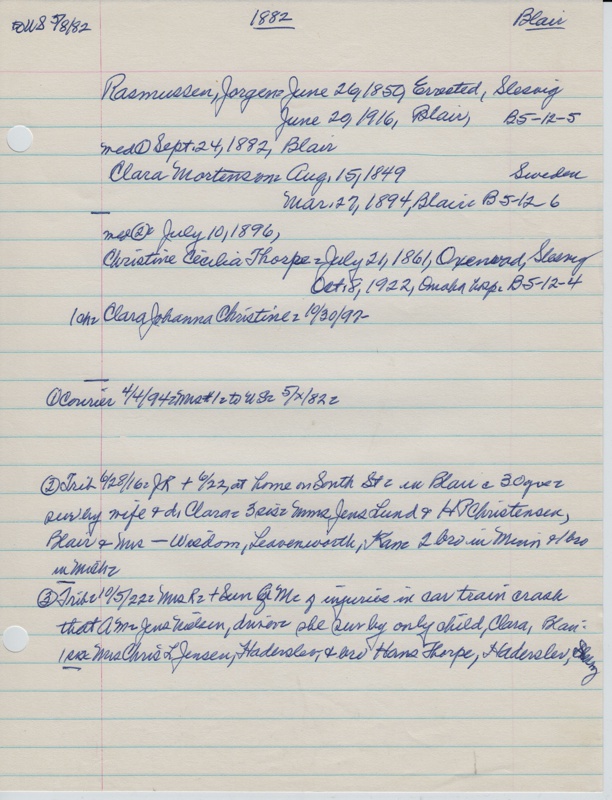 5/8/82 1882 Blair
Rasmussen, Jorgen= June 26, 1850, Errested, Slesvig
June 20, 1916, Blair, B5-12-5
med① Sept. 24, 1892, Blair
Clara Mortenson= Aug. 15, 1849 Sweden
Mar. 27, 1894, Blair= B5-12-6
med② July 10, 1896,
Christine Cecilia Thorpe= July 21, 1861, Oxenvad, Slesvig
Oct. 8, 1922, Omaha Hosp= B5-12-4
1 ch= Clara Johanna Christine= 10/30/97-
① Courier 4/4/94= Mrs #1= to US= 5/x/82=
② Trib 6/28/16= JR + 6/22, at home on South St= in Blair=
surv by wife & d, Clara= 3 sis= Mmes Jens Lund & HP Christensen,
Blair & Mrs — Wisdom, Leavenworth, Kan= 2 bro in Minn & 1 bro
in Mich=
③ Trib= 10/5/22= Mrs R= + Sun of injuries in car train crash
that Jens Nielsen, driver= she surv by only child, Clara, Blair=
1 sis= Mrs Chris L Jensen, Haderslev, & bro Hans Thorpe, Haderslev,